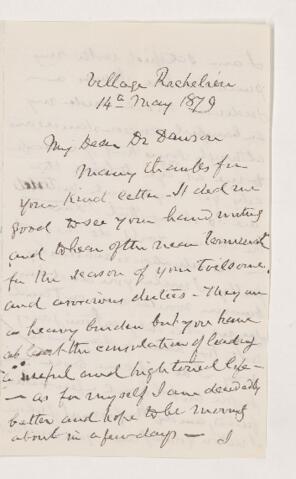 Village Richelieu
14th May 1879
My Dear Dr Dawson
Many thanks for
your kind letter - It did me
good to see your hand writing
and to hear of the near
for the season of your toilsome
and duties - They are
a heavy burden but you have
at least the consolation of leading
a useful and high toned life -
- as for myself I am decidedly
better and hope to be moving
about in a few days - I